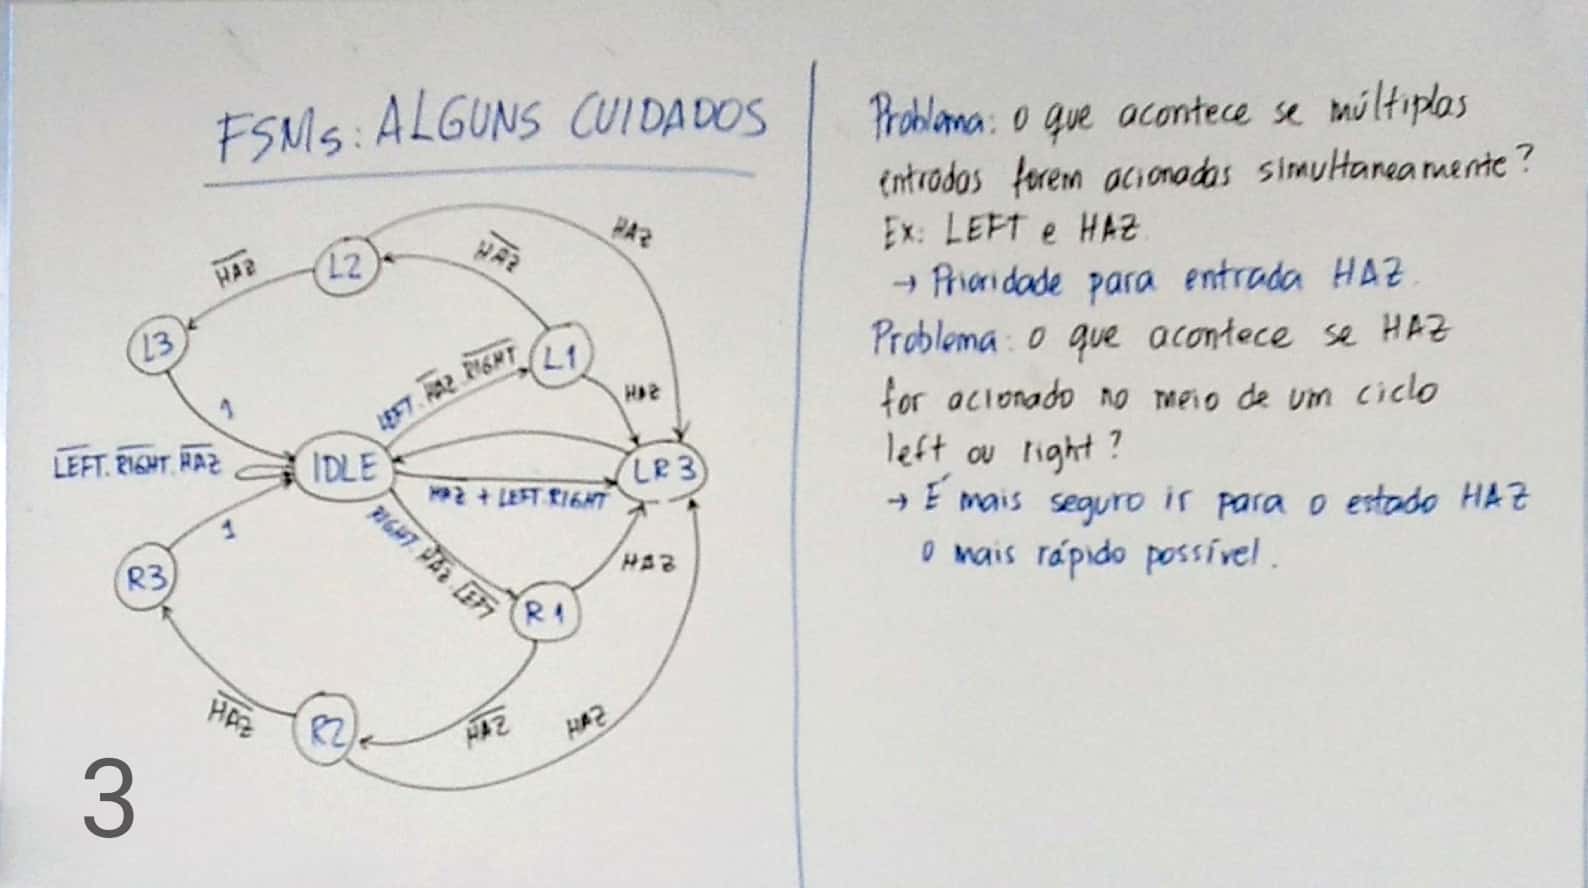 FSMs: ALGUNS CUIDADOS
HAZ
H̅A̅Z̅
L2
H̅A̅Z̅
L3
L1
LEFT.H̅A̅Z̅.R̅I̅G̅H̅T̅
HAZ
1
L̅E̅F̅T̅.R̅I̅G̅H̅T̅.H̅A̅Z̅
IDLE
LR3
HAZ + LEFT.RIGHT
1
RIGHT.H̅A̅Z̅.L̅E̅F̅T̅
HAZ
R3
R1
H̅A̅Z̅
R2
H̅A̅Z̅
HAZ
3
Problema: o que acontece se múltiplas
entradas forem acionadas simultaneamente?
Ex: LEFT e HAZ
→ Prioridade para entrada HAZ.
Problema: o que acontece se HAZ
for acionado no meio de um ciclo
left ou right?
→ É mais seguro ir para o estado HAZ
o mais rápido possível.